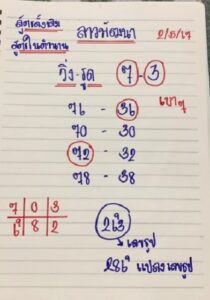 สูตรดั้งเดิม ลาวพัฒนา
สูตรในตำนาน
วิ่ง-รูด 7-3
76 - 36 เบาๆ
70 - 30
72 - 32
78 - 38
7 0 3
6 8 2
263
เลขธูป
286 แปลงเลขธูป